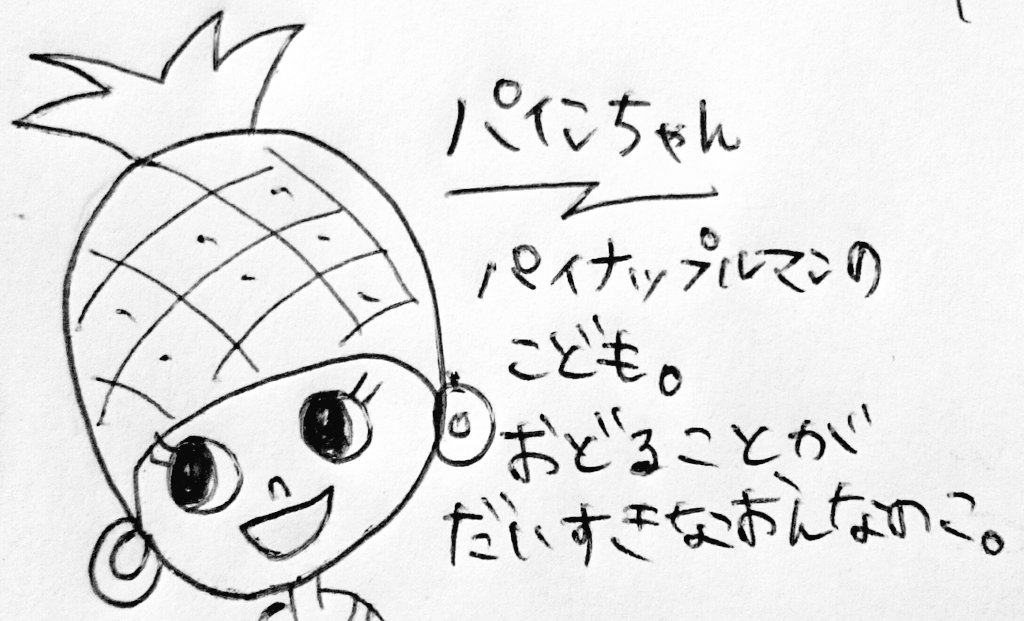 パインちゃん
パイナップルマンの
こども。
おどることが
だいすきなおんなのこ。